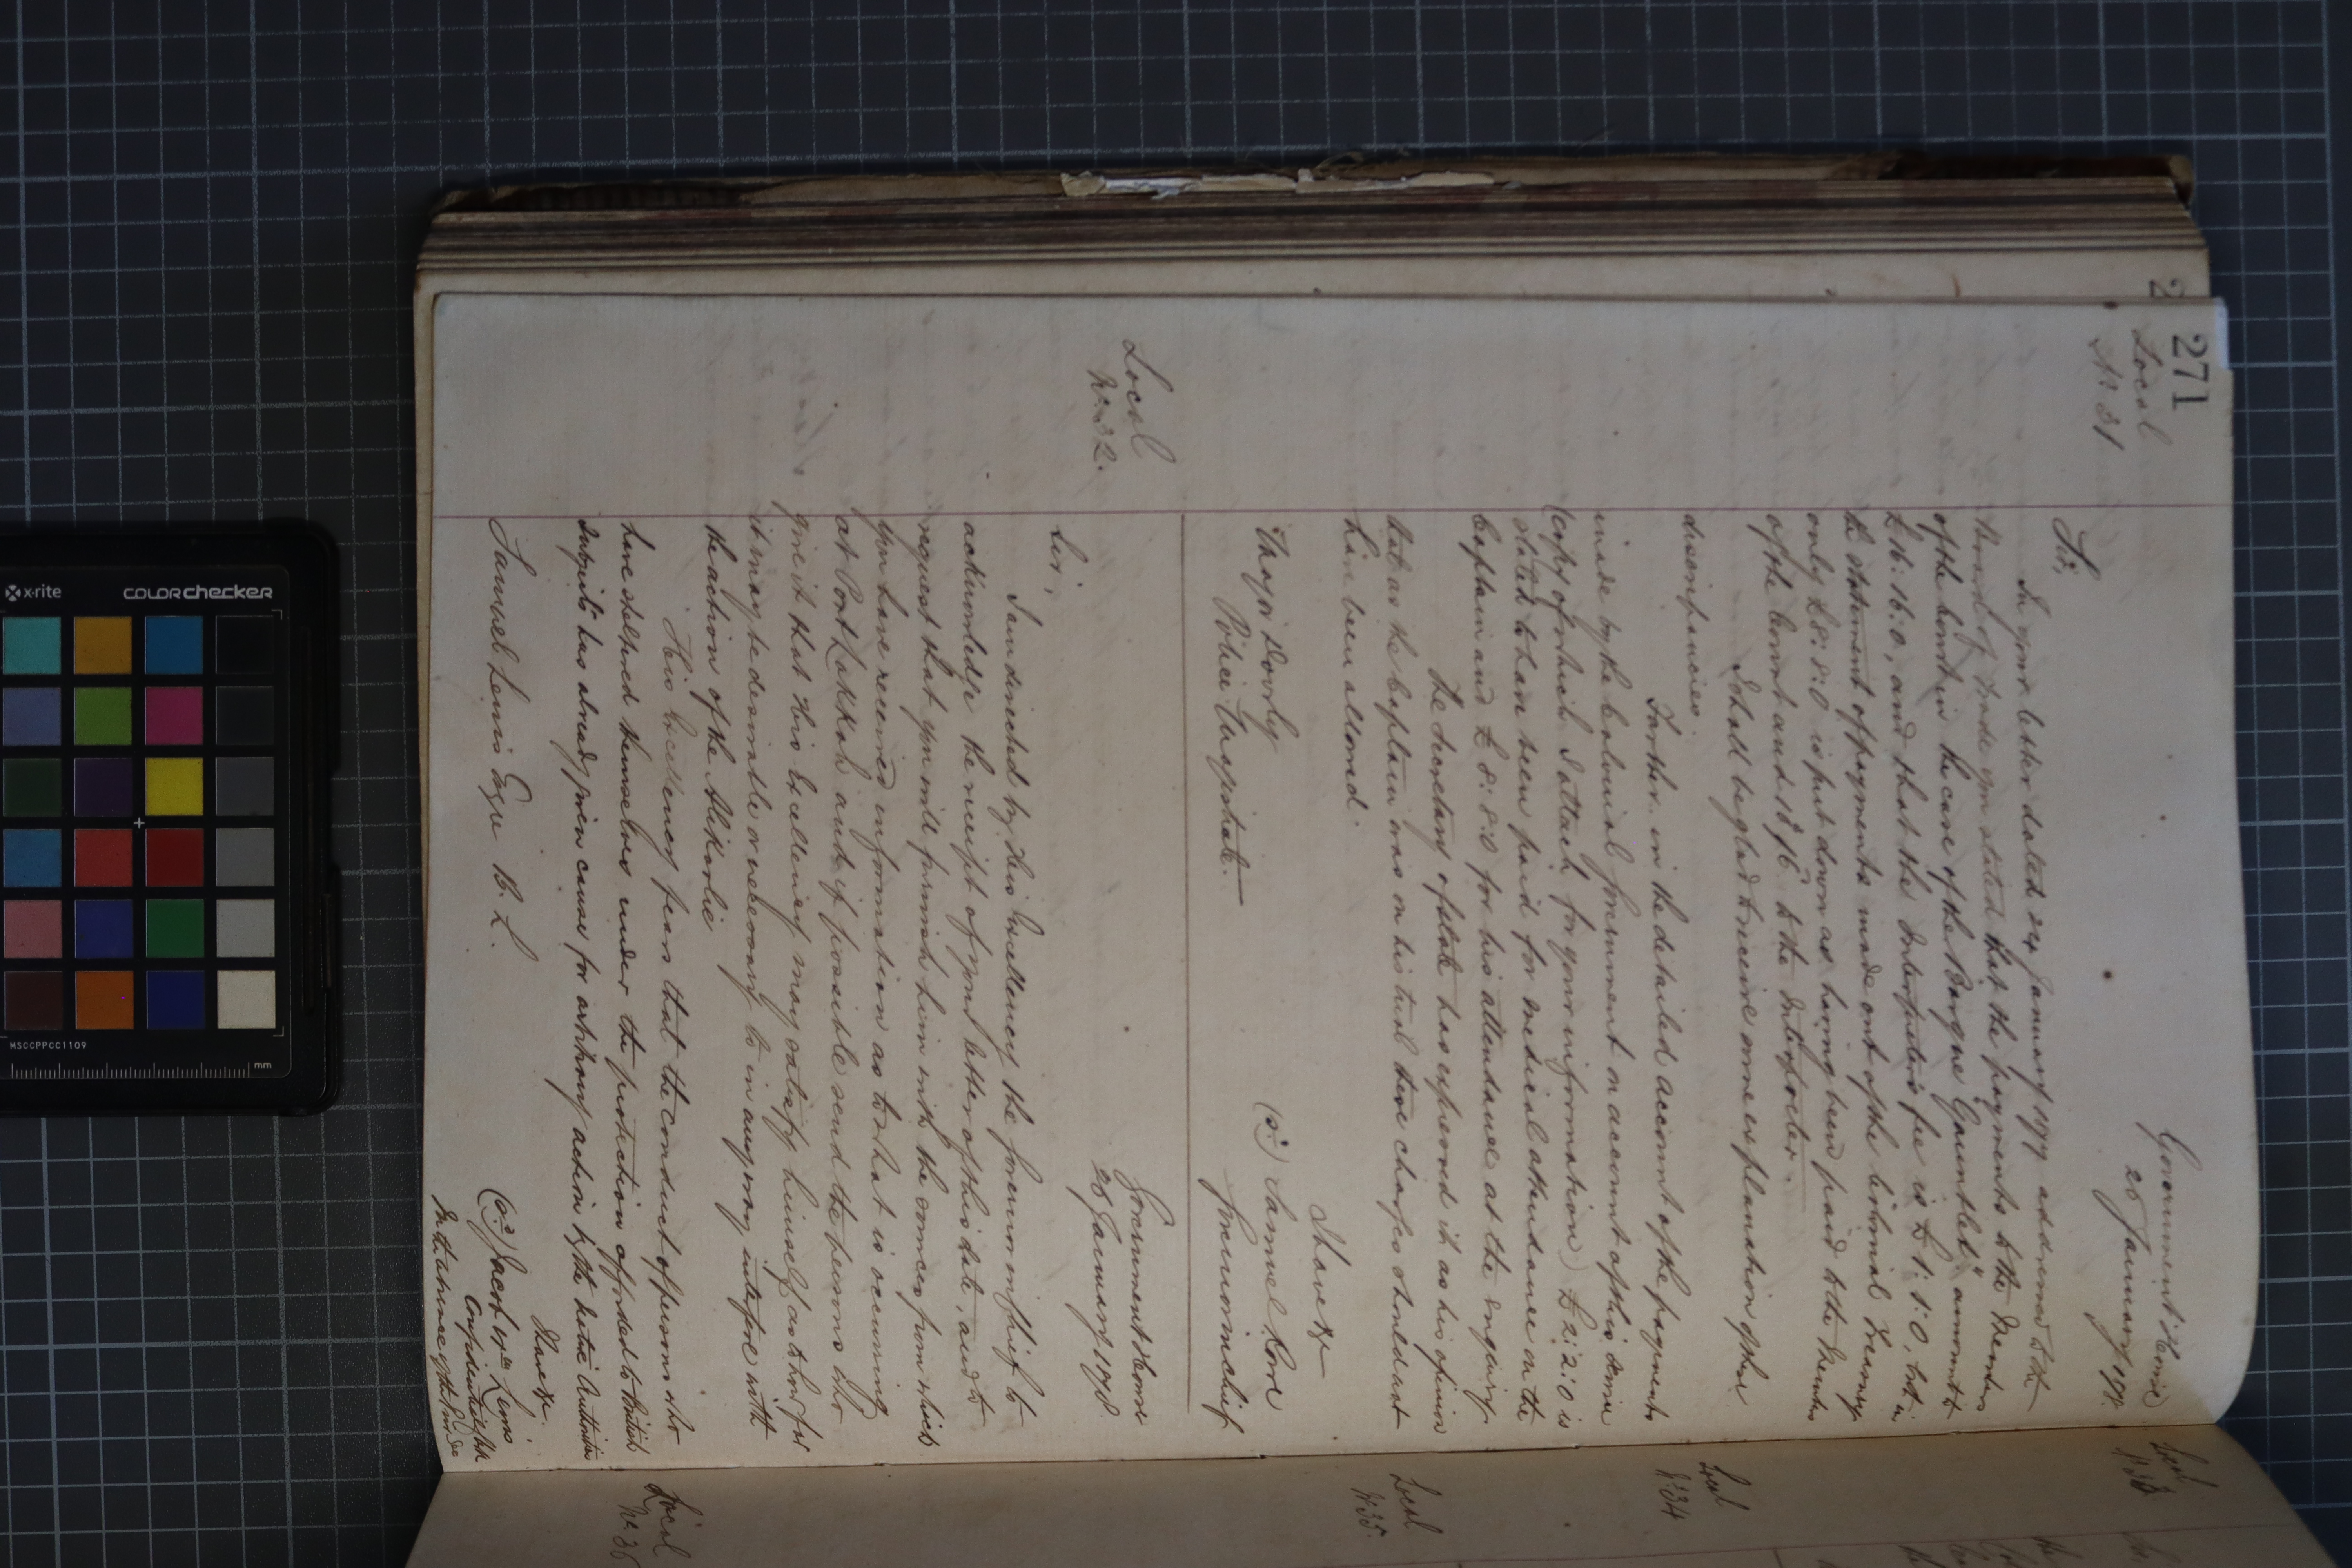 271
Local
No 31
Government Home
28 January 1878
Sir,
In your letter dated 24 January 1878 addressed to the
Board of Trade you stated that the payments to the Members
of the Court in the case of the Barque "Gauntlet" amount to
£16:16:0, and that the Interpreter's fee is £1:1:0, but in
the statement of payments made out of the Colonial Treasury
only £8:8:0 is put down as having been paid to the Members
of the Court and to the Interpreter.
I shall be glad to receive some explanation of these
discrepancies.
Further in the detailed account of the payments
made by the Colonial Government on account of this
(copy of which I attach for your information) £2:2:0 is
stated to have been paid for medical attendance on the
Captain and £8:8:0 for his attendance at the enquiry.
The Secretary of State has expressed it as his opinion
that as the Captain was on his trial these charges should not
have been allowed.
I have &c
(sd) Samuel Rowe
Governor in chief
Major Doorly
Police Magistrate.
Local
No 32.
Government House
28 January 1878
Sir,
I am directed by His Excellency the Governor in chief to
acknowledge the receipt of your letter of this date, and to
request that you will furnish him with the sources from which
you have received information as to what is occurring
at Port Lokkoh and if possible send the persons who
give it that His Excellency may satisfy himself as to how far
it may be desirable or necessary to in any way interfere with
the action of the Alikarlie
His Excellency fears that the conduct of persons who
have sheltered themselves under the protection afforded to British
subjects has already given cause for arbitrary action by the Native Authorities
I have &c.
(sd) Jacob Wm Lewis
Confidential Clk
In the absence of the
Samuel Lewis Esqre B. L.
Local
No 33
Local
No 34
Local
No 35.
Local
No 36